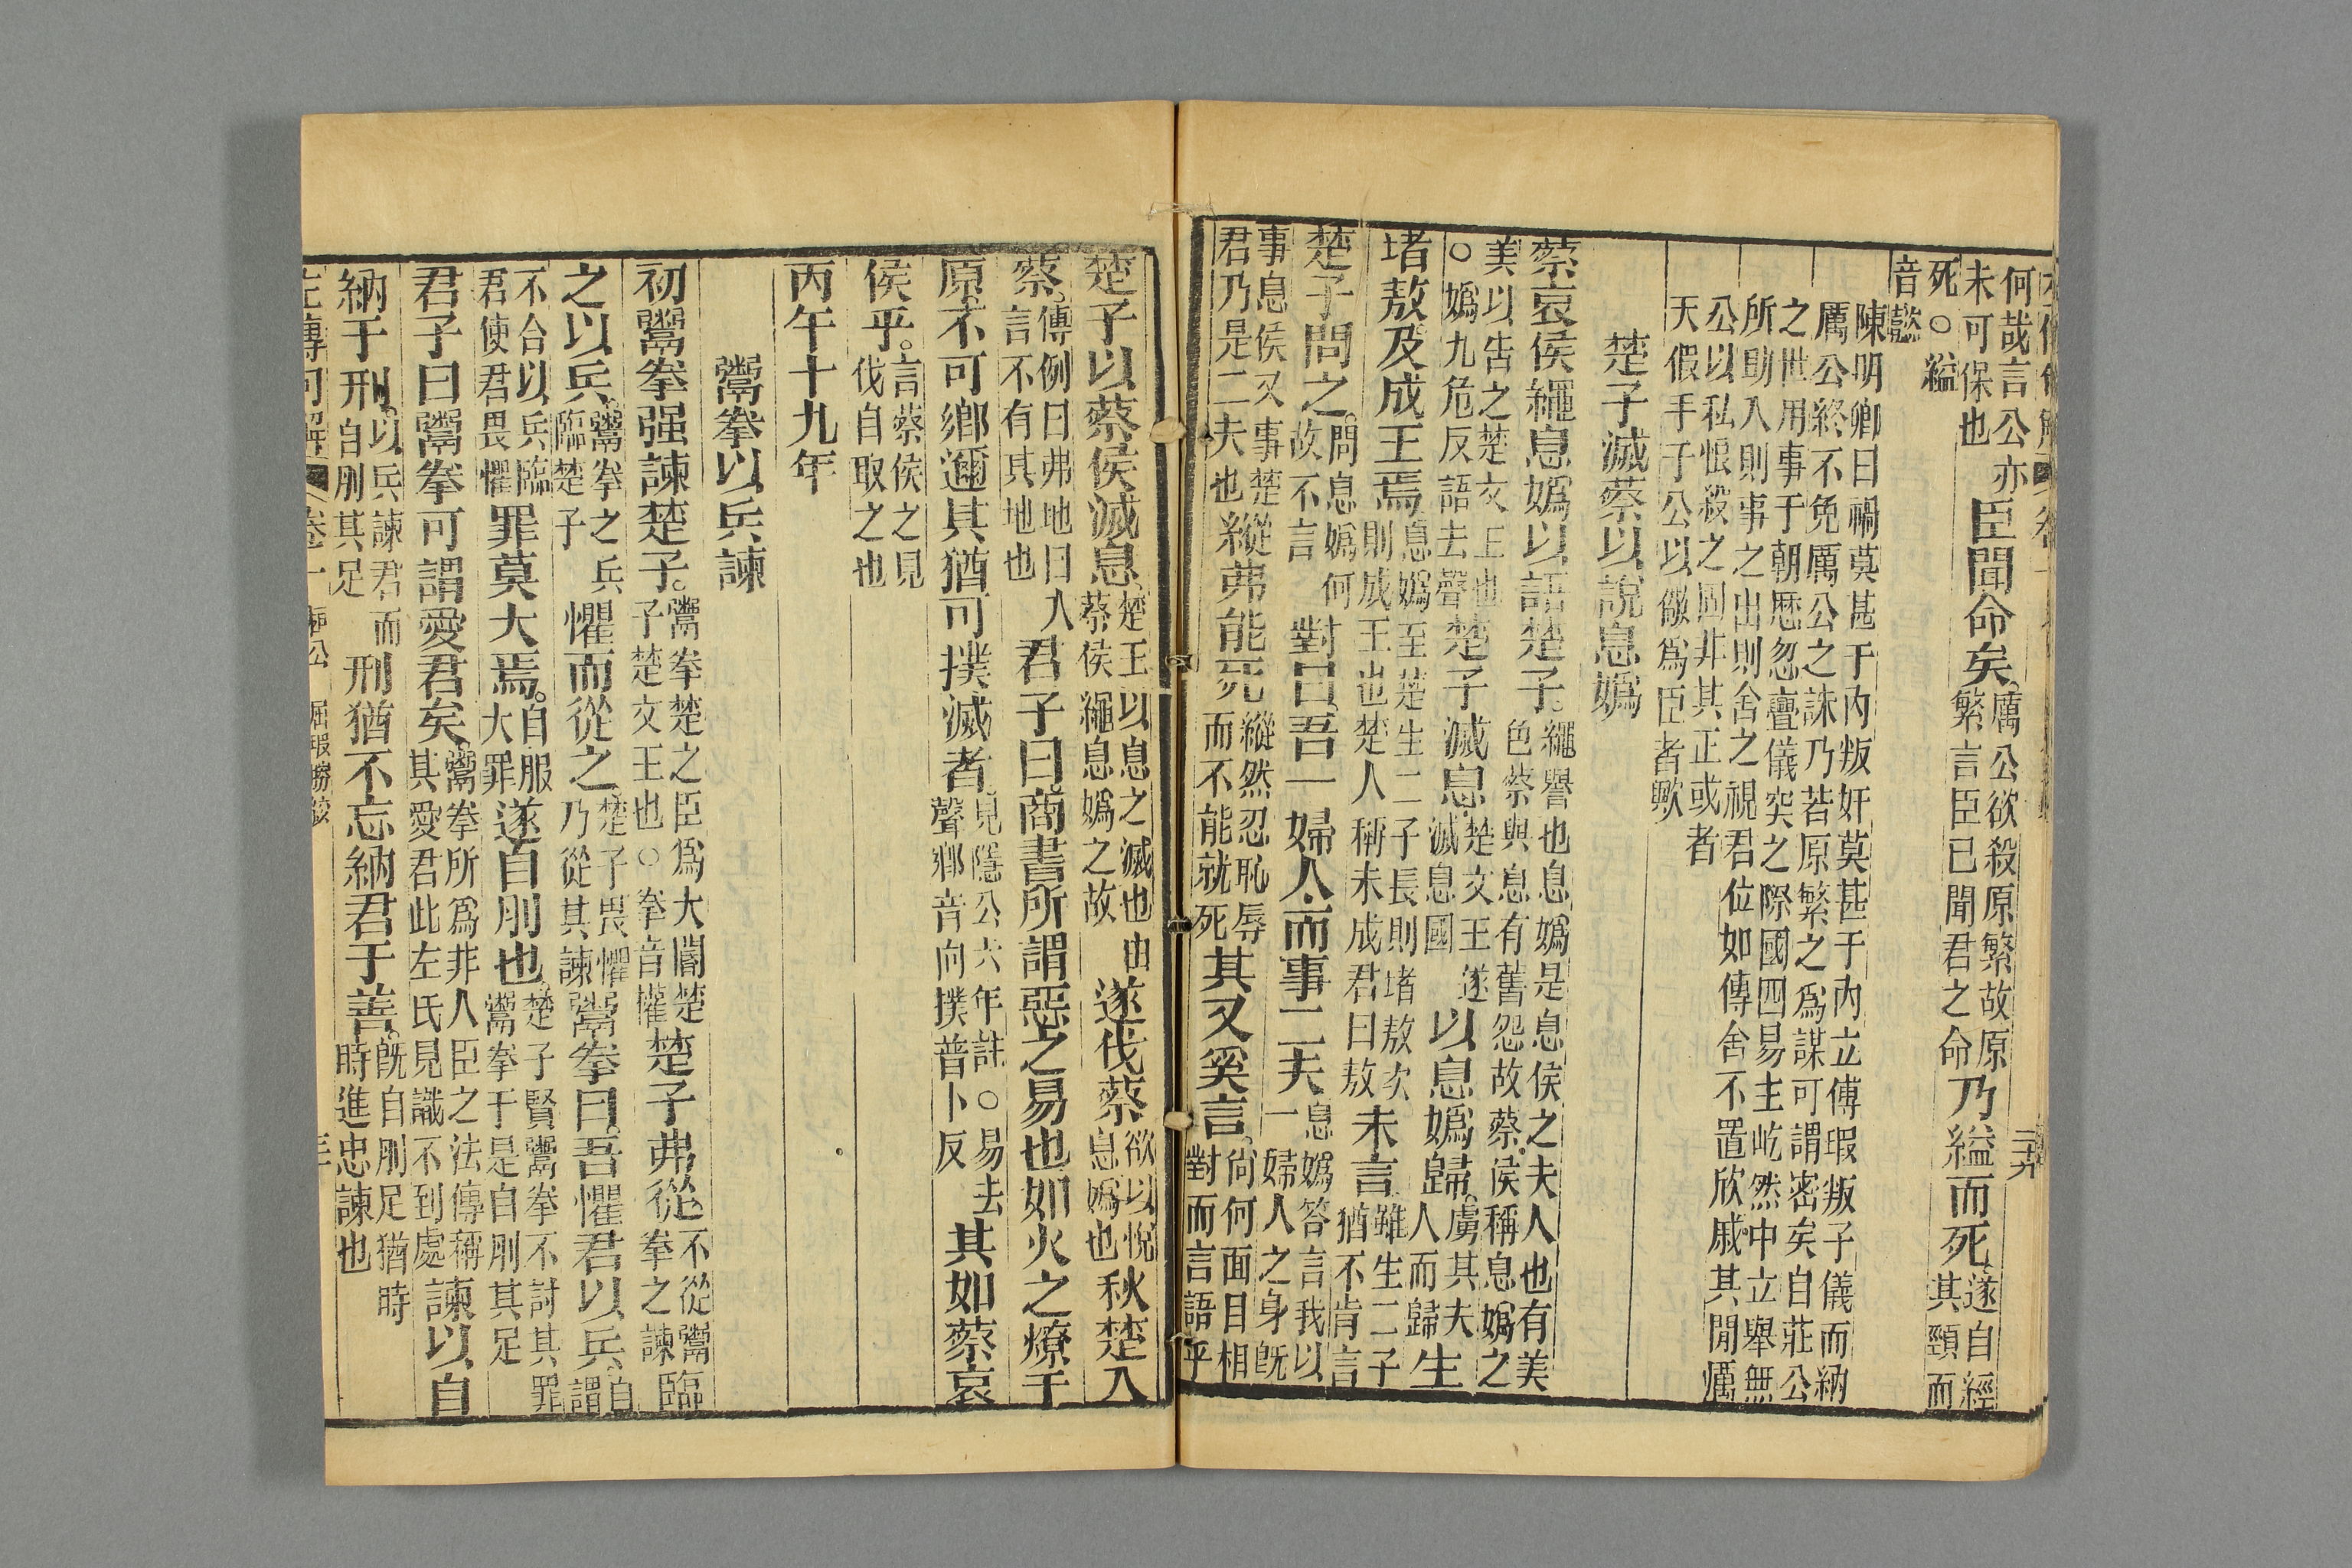 何哉言公亦
未可保也
臣聞命矣
厲公欲殺原繁故原
繁言臣已聞君之命
乃縊而死
遂自經
其頸而
死○縊
音懿
陳明卿曰禍莫甚于內叛奸莫甚于內立傅瑕叛子儀而納
厲公終不免厲公之誅乃若原繁之為謀可謂密矣自莊公
之世用事于朝歷忽亹儀突之際國四易主屹然中立舉無
所助入則事之出則舍之視君位如傳舍不置欣戚其閒厲
公以私恨殺之固非其正或者
天假手于公以儆爲臣者歟
楚子滅蔡以說息嬀
蔡哀侯繩息嬀以語楚子
繩譽也息嬀是息侯之夫人也有美
色蔡與息有舊怨故蔡侯稱息嬀之
美以告之楚文王也
○嬀九危反語去聲
楚子滅息
楚文王遂
滅息國
以息嬀歸
虜其夫
人而歸
生
堵敖及成王焉
息嬀至楚生二子長則堵敖次
則成王也楚人稱未成君曰敖
未言
雖生二子
猶不肯言
楚子問之
問息嬀何
故不言
對曰吾一婦人而事二夫
息嬀答言我以
一婦人之身旣
事息侯又事楚
君乃是二夫也
縱弗能死
縱然忍恥辱
而不能就死
其又奚言
尙何面目相
對而言語乎
楚子以蔡侯滅息
楚王以息之滅也由
蔡侯繩息嬀之故
遂伐蔡
欲以悅
息嬀也
秋楚入
蔡
傳例曰弗地曰入
言不有其地也
君子曰商書所謂惡之易也如火之燎于
原不可鄉邇其猶可撲滅者
見隱公六年註○易去
聲鄉音向撲普卜反
其如蔡哀
侯乎
言蔡侯之見
伐自取之也
丙午十九年
鬻拳以兵諫
初鬻拳强諫楚子
鬻拳楚之臣爲大閽楚
子楚文王也○拳音權
楚子弗從
不從鬻
拳之諫
臨
之以兵
鬻拳之兵
臨楚子
懼而從之
楚子畏懼
乃從其諫
鬻拳曰吾懼君以兵
自
謂
不合以兵臨
君使君畏懼
罪莫大焉
自服
大罪
遂自刖也
楚子賢鬻拳不討其罪
鬻拳于是自刖其足
君子曰鬻拳可謂愛君矣
鬻拳所爲非人臣之法傳稱
其愛君此左氏見識不到處
諫以自
納于刑
以兵諫君而
自刖其足
刑猶不忘納君于善
旣自刖足猶時
時進忠諫也